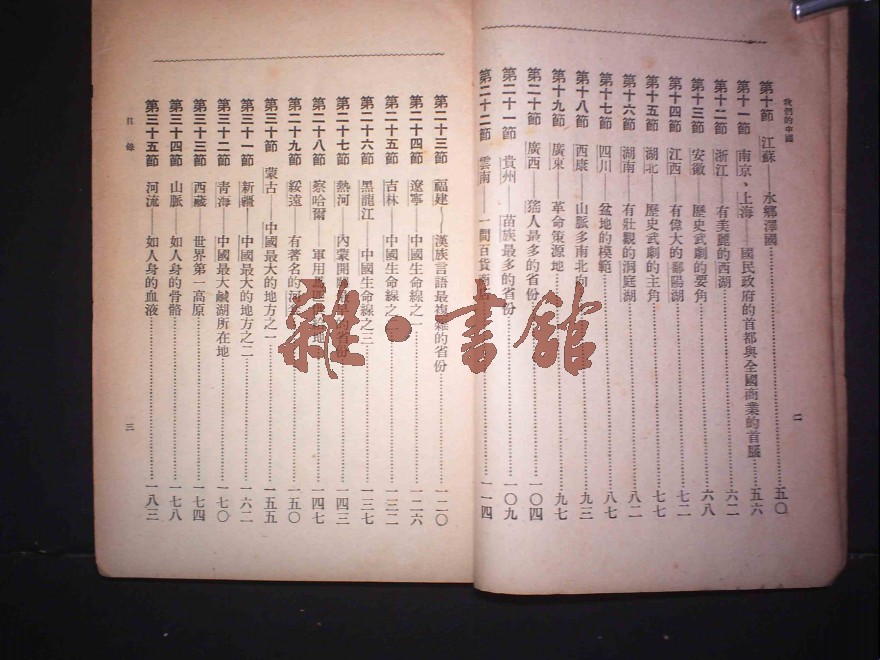 我們的中國
第十節 江蘇——水鄉澤國……五〇
第十一節 南京、上海——國民政府的首都與全國商業的首腦……五六
第十二節 浙江——有美麗的西湖……六二
第十三節 安徽——歷史武劇的要角……六八
第十四節 江西——有偉大的鄱陽湖……七二
第十五節 湖北——歷史武劇的主角……七七
第十六節 湖南——有壯觀的洞庭湖……八二
第十七節 四川——盆地的模範……八七
第十八節 西康——山脈多南北向……九三
第十九節 廣東——革命策源地……九七
第二十節 廣西——猺人最多的省份……一〇四
第二十一節 貴州——苗族最多的省份……一〇九
第二十二節 雲南——一間百貨商店……一一四
二
第二十三節 福建——漢族言語最複雜的省份……一二〇
第二十四節 遼寧——中國生命線之一……一二六
第二十五節 吉林——中國生命線之二……一三二
第二十六節 黑龍江——中國生命線之三……一三七
第二十七節 熱河——內蒙開闢最早的省份……一四三
第二十八節 察哈爾——軍用馬匹供給地……一四七
第二十九節 綏遠——有著名的河套……一五〇
第三十節 蒙古——中國最大的地方之一……一五五
第三十一節 新疆——中國最大的地方之二……一六二
第三十二節 青海——中國最大鹹湖所在地……一七〇
第三十三節 西藏——世界第一高原……一七四
第三十四節 山脈——如人身的骨骼……一七八
第三十五節 河流——如人身的血液……一八三
目錄
三
雜·書館